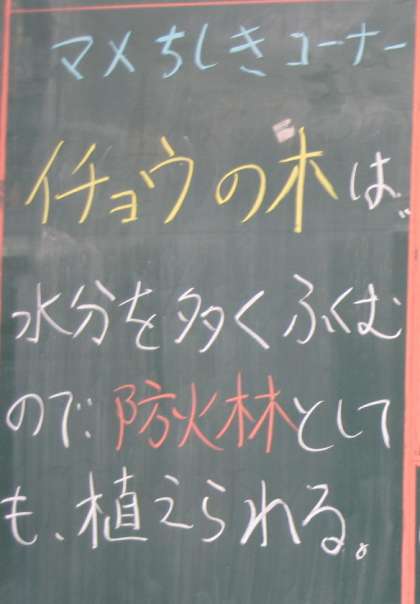 マメちしきコーナー
イチョウの木は
水分を多くふくむ
ので、防火林として
も、植えられる。